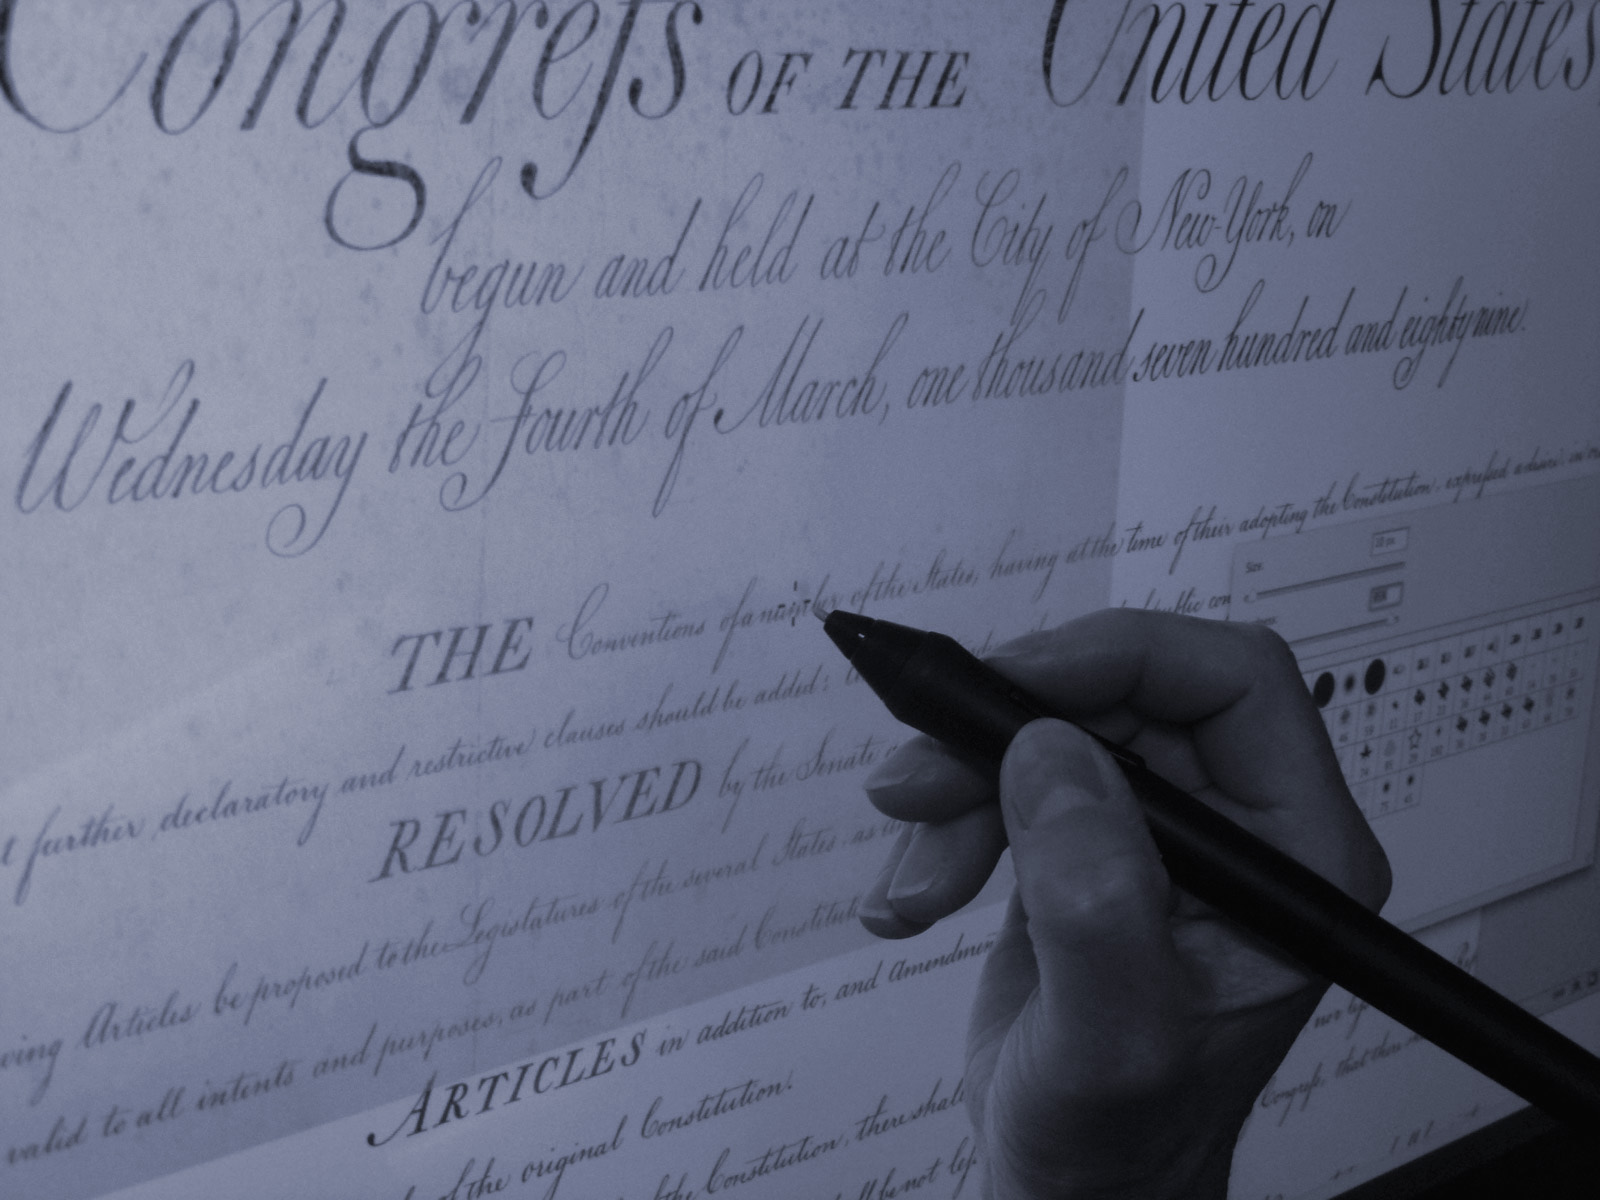 Congreſs OF THE United States
begun and held at the City of New-York, on
Wednesday the Fourth of March, one thousand seven hundred and eighty nine.
THE Conventions of a number of the States, having at the time of their adopting the Constitution, expreſsed a desire, in
t further declaratory and restrictive clauses should be added: public con
RESOLVED by the Senate
wing Articles be proposed to the Legislatures of the several States, as
valid to all intents and purposes, as part of the said Constituti
ARTICLES in addition to, and Amendmen
of the original Constitution.
the Constitution, there shall
ll be not leſs
Size
Congreſs, that there